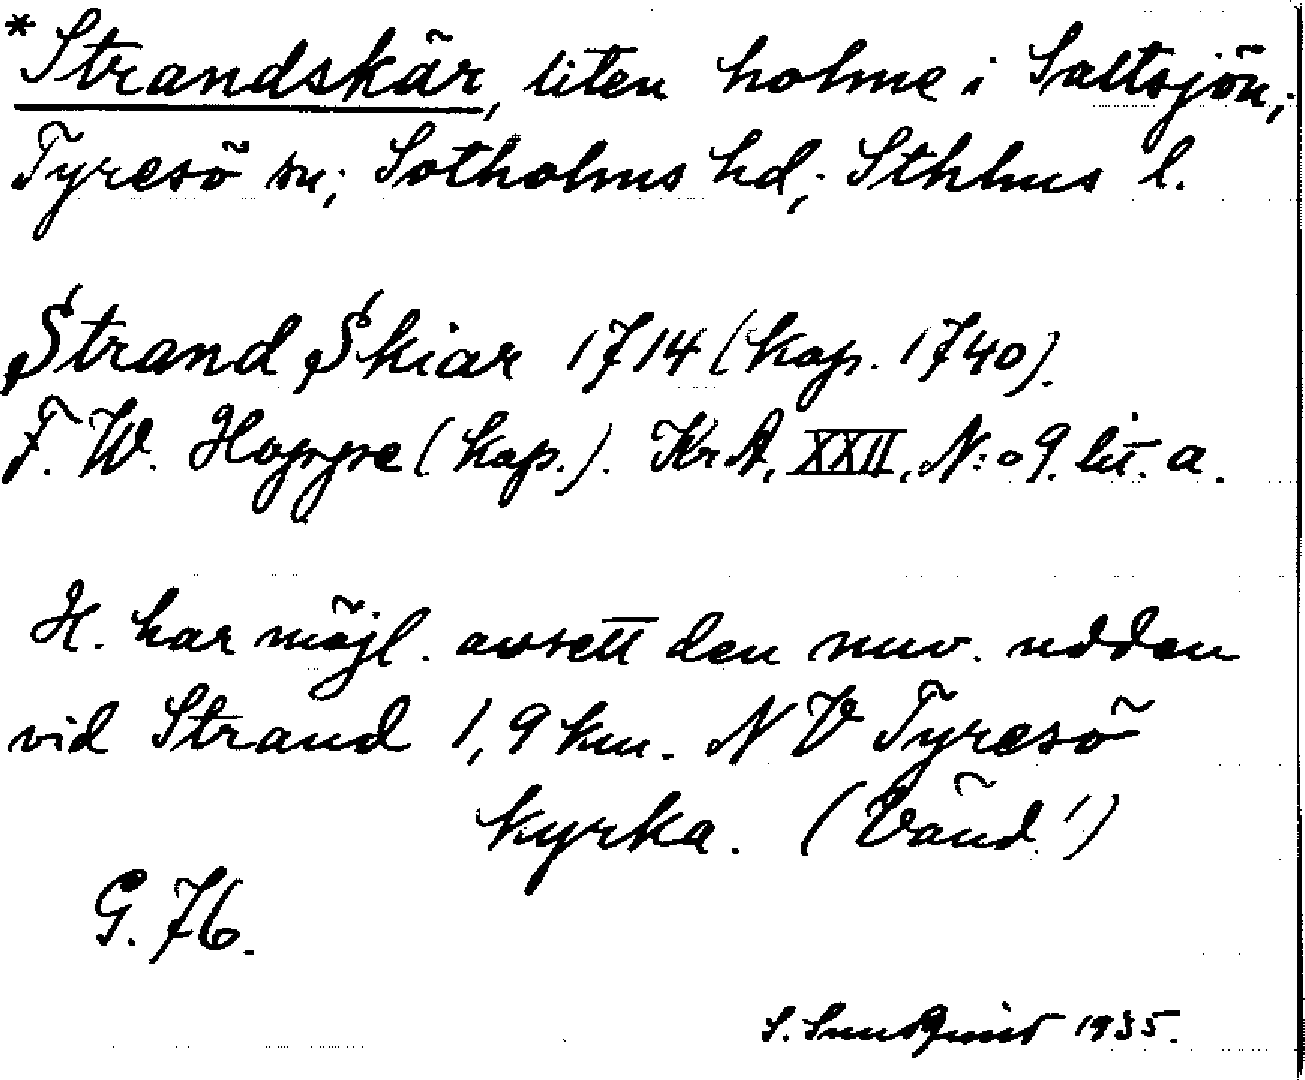 *Strandskär, liten holme i Saltsjön,
Tyresö sn; Sotholms hd; Sthlms l.
Strand Skiar 1714 (kop. 1740).
F. W. Hoppe (kop.). KrA, XXII, N:o 9. lit. a.
H. har möjl. avsett den nuv. udden
vid Strand 1,9 km. NV Tyresö
kyrka. (Vänd!)
G. 76.
S. Sundquist 1935.